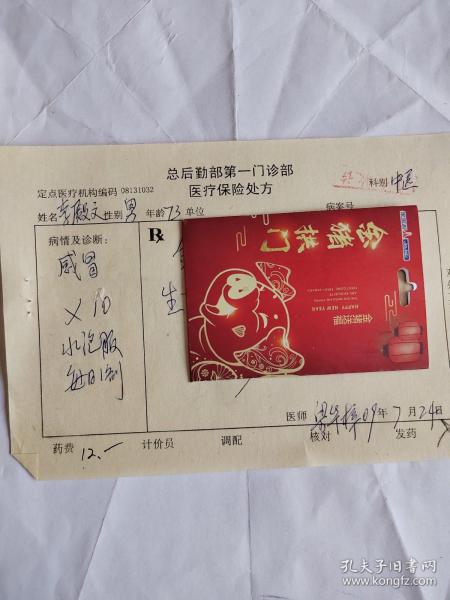 总后勤部第一门诊部
定点医疗机构编码 08131032
医疗保险处方
科别 中医
姓名 性别 男 年龄 73 单位 病案号
病情及诊断:
R
感冒
X 10
水泡服
每日1剂
生
金猪拱门
金猪送福
HAPPY NEW YEAR
医师 09年 7月 24日
药费 12.- 计价员 调配 核对 发药
孔夫子旧书网
www.kongfz.com